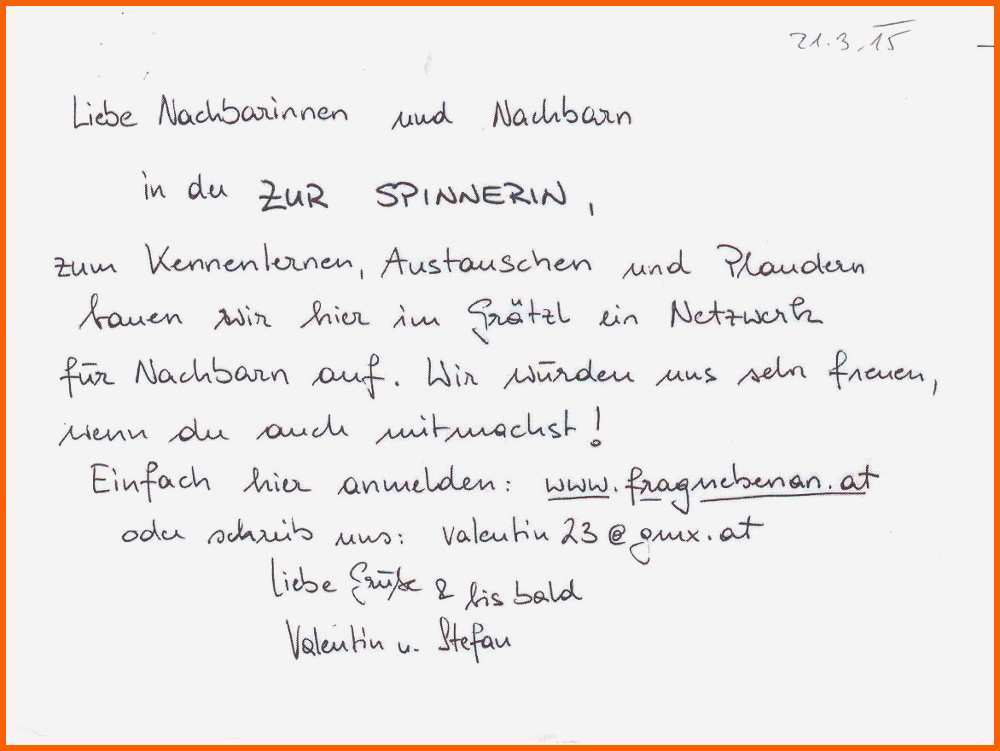 21.3.15
Liebe Nachbarinnen und Nachbarn
in der ZUR SPINNERIN,
zum Kennenlernen, Austauschen und Plaudern
bauen wir hier im Grätzl ein Netzwerk
für Nachbarn auf. Wir würden uns sehr freuen,
wenn du auch mitmachst!
Einfach hier anmelden: www.fragnebenan.at
oder schreib uns: valentin23@gmx.at
Liebe Grüße & bis bald
Valentin u. Stefan